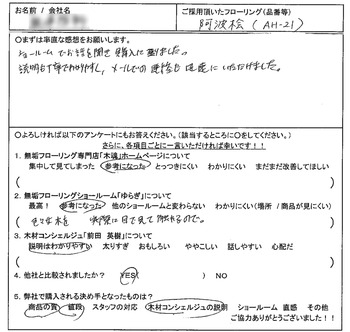 お名前 / 会社名
ご採用頂いたフローリング(品番等)
阿波桧 (AH-21)
〇まずは率直な感想をお願いします。
ショールームでお話を聞き購入に至りました。
説明も丁寧でわかりやすく、メールでの連絡も迅速にいただけました。
〇よろしければ以下のアンケートにもお答えください。(該当するところに〇をしてください。)
さらに、各項目ごとに一言いただければ幸いです!!
1. 無垢フローリング専門店「木魂」ホームページについて
集中して見てしまった 参考になった とっつきにくい わかりにくい まだまだ改善してほしい
( )
2. 無垢フローリングショールーム「ゆらぎ」について
最高! 参考になった 他のショールームと変わらない わかりにくい (場所 / 商品が見にくい)
( 色々な木を 実際に目で見て 作れるので。 )
3. 木材コンシェルジュ「前田 英樹」について
説明はわかりやすい 太りすぎ おもしろい ややこしい 話しやすい 心配だ
( )
4. 他社と比較されましたか? YES( ) NO
5. 弊社で購入される決め手となったものは?
商品の質 値段 スタッフの対応 木材コンシェルジュの説明 ショールーム 直感 その他
ご協力ありがとうございました!!